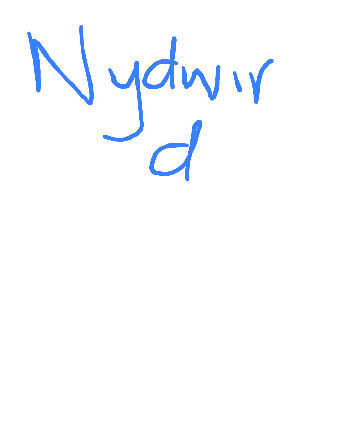 Nydwir
d